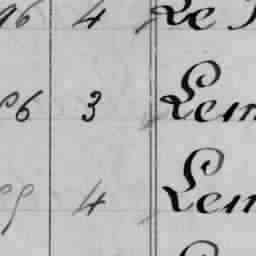 96 4 Le
06 3 Lem
4 Lem